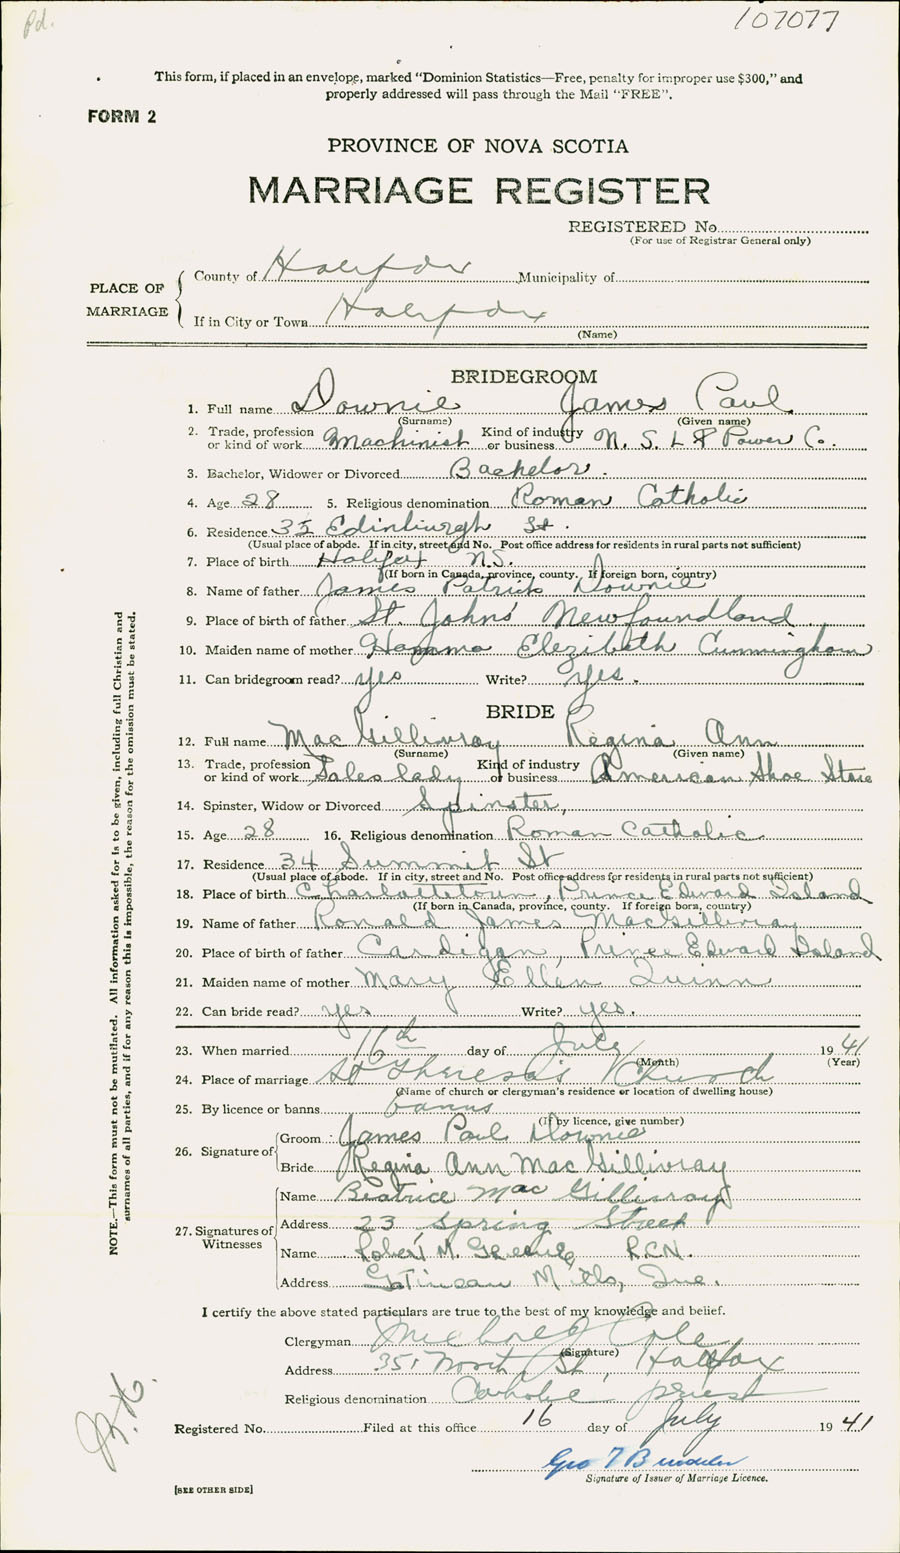 Pd.
107077
This form, if placed in an envelope, marked "Dominion Statistics—Free, penalty for improper use $300," and
properly addressed will pass through the Mail "FREE".
FORM 2
PROVINCE OF NOVA SCOTIA
MARRIAGE REGISTER
REGISTERED No.
(For use of Registrar General only)
PLACE OF MARRIAGE
County of Halifax Municipality of
If in City or Town Halifax
(Name)
BRIDEGROOM
1. Full name Downie James Paul
(Surname) (Given name)
2. Trade, profession or kind of work Machinist Kind of industry or business N. S. L & Power Co.
3. Bachelor, Widower or Divorced Bachelor.
4. Age 28 5. Religious denomination Roman Catholic
6. Residence 35 Edinburgh St.
(Usual place of abode. If in city, street and No. Post office address for residents in rural parts not sufficient)
7. Place of birth Halifax N.S.
(If born in Canada, province, county. If foreign born, country)
8. Name of father James Patrick Downie
9. Place of birth of father St. John's Newfoundland
10. Maiden name of mother Elezibeth Cunningham
11. Can bridegroom read? yes Write? yes.
BRIDE
12. Full name MacGillivray Regina Ann
(Surname) (Given name)
13. Trade, profession or kind of work Sales lady Kind of industry or business American Shoe Store
14. Spinster, Widow or Divorced Spinster,
15. Age 28 16. Religious denomination Roman Catholic
17. Residence 34 Summit St
(Usual place of abode. If in city, street and No. Post office address for residents in rural parts not sufficient)
18. Place of birth Charlottetown, Prince Edward Island
(If born in Canada, province, county. If foreign born, country)
19. Name of father Ronald James MacGillivray
20. Place of birth of father Cardigan, Prince Edward Island
21. Maiden name of mother Mary Ellen Quinn
22. Can bride read? yes Write? yes.
23. When married 16th day of July 1941
(Month) (Year)
24. Place of marriage St Theresa's Church
(Name of church or clergyman's residence or location of dwelling house)
25. By licence or banns banns
(If by licence, give number)
26. Signature of
Groom James Paul Downie
Bride Regina Ann MacGillivray
27. Signatures of Witnesses
Name Beatrice MacGillivray
Address 23 Spring Street
Name Robert M. R.C.N.
Address Mills, Que.
I certify the above stated particulars are true to the best of my knowledge and belief.
Clergyman Michael Cole
(Signature)
Address 351 North St, Halifax
Religious denomination Catholic priest
Registered No. Filed at this office 16 day of July 1941
Geo T
Signature of Issuer of Marriage Licence.
[SEE OTHER SIDE]
NOTE.—This form must not be mutilated. All information asked for is to be given, including full Christian and
surnames of all parties, and if for any reason this is impossible, the reason for the omission must be stated.